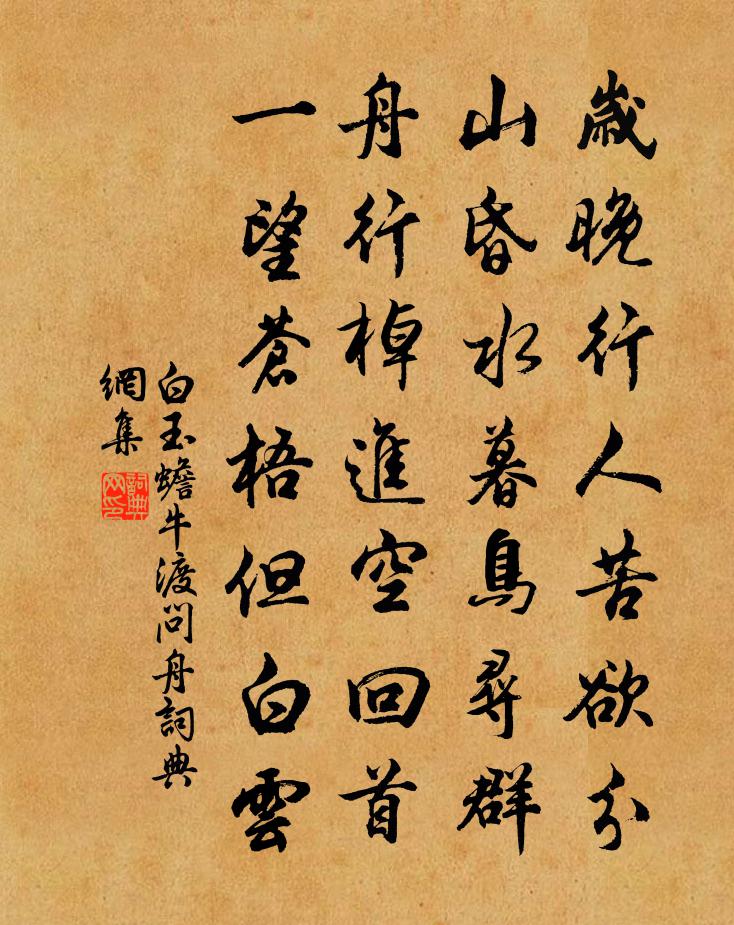 歲晚行人苦欲分
山昏水暮鳥尋群
舟行棹進空回首
一望蒼梧但白雲
白玉蟾牛渡問舟詞典
網集
詞典
网印